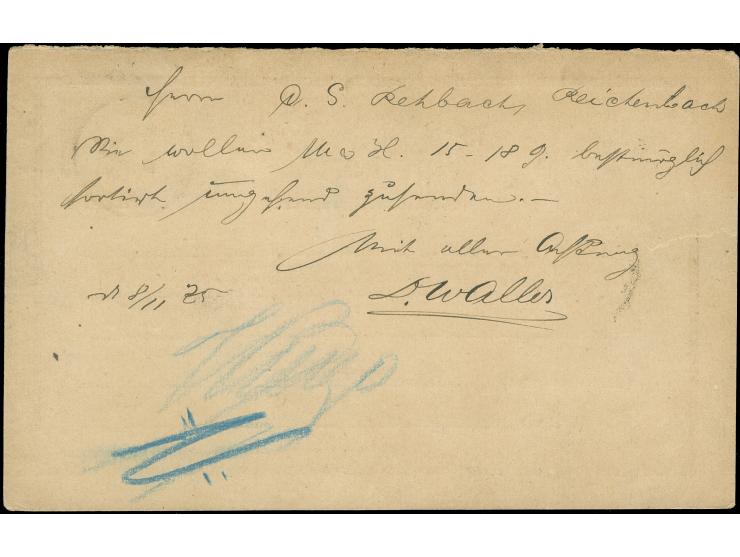 Herrn D. S. Rehbach, Reichenbach
Sie wollen 15-18 g. bestmöglich
sortirt umgehend zusenden.-
Mit aller Achtung
D. Waller
d 8/11 75